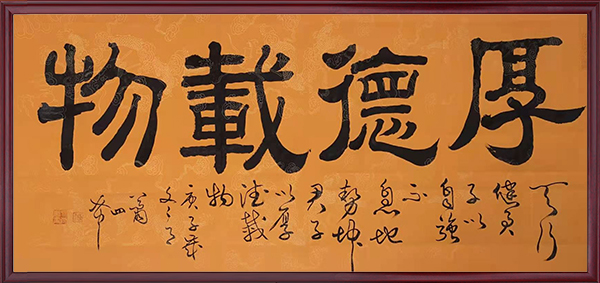 厚德載物
天行
健君
子以
自強
不
息地
勢坤
君子
以厚
德載
物
庚子